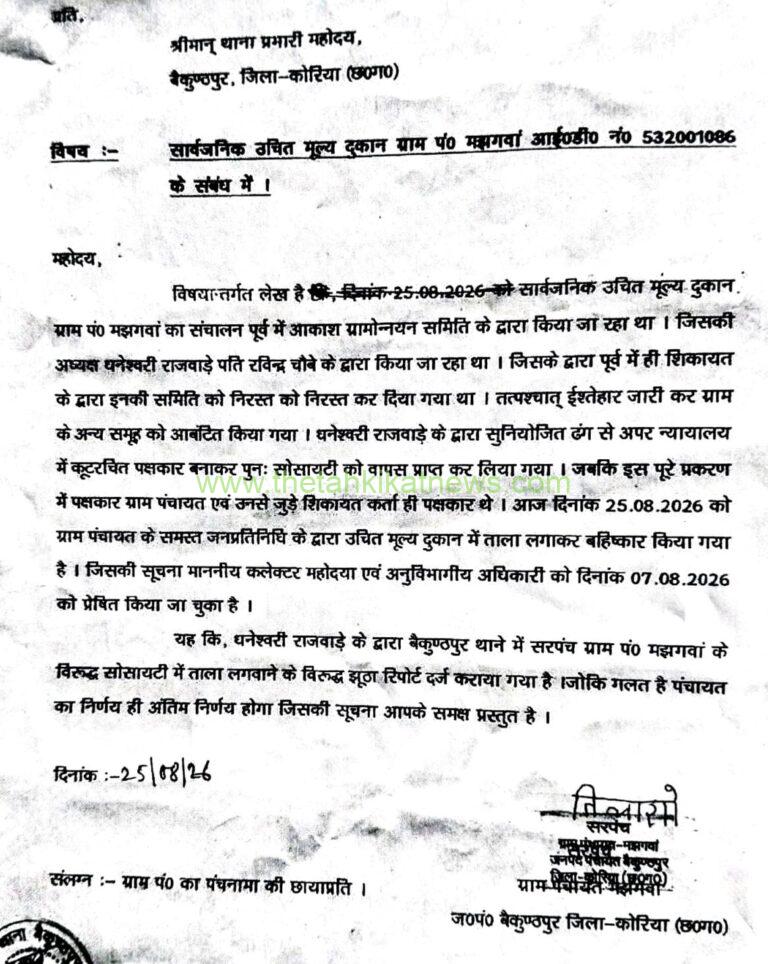 प्रति,
श्रीमान् थाना प्रभारी महोदय,
बैकुण्ठपुर, जिला–कोरिया (छ०ग०)
विषय :– सार्वजनिक उचित मूल्य दुकान ग्राम पं० मझगवां आई०डी० नं० 532001086
के संबंध में ।
महोदय,
विषयांतर्गत लेख है कि, दिनांक 25.08.2026 को सार्वजनिक उचित मूल्य दुकान
ग्राम पं० मझगवां का संचालन पूर्व में आकाश ग्रामोन्नयन समिति के द्वारा किया जा रहा था । जिसकी
अध्यक्ष धनेश्वरी राजवाड़े पति रविन्द्र चौबे के द्वारा किया जा रहा था । जिसके द्वारा पूर्व में ही शिकायत
के द्वारा इनकी समिति को निरस्त को निरस्त कर दिया गया था । तत्पश्चात् ईश्तेहार जारी कर ग्राम
के अन्य समूह को आबंटित किया गया । धनेश्वरी राजवाड़े के द्वारा सुनियोजित ढंग से अपर न्यायालय
में कूटरचित पक्षकार बनाकर पुनः सोसायटी को वापस प्राप्त कर लिया गया । जबकि इस पूरे प्रकरण
www.thetahkikatnews.com
में पक्षकार ग्राम पंचायत एवं उनसे जुड़े शिकायत कर्ता ही पक्षकार थे । आज दिनांक 25.08.2026 को
ग्राम पंचायत के समस्त जनप्रतिनिधि के द्वारा उचित मूल्य दुकान में ताला लगाकर बहिष्कार किया गया
है । जिसकी सूचना माननीय कलेक्टर महोदया एवं अनुविभागीय अधिकारी को दिनांक 07.08.2026
को प्रेषित किया जा चुका है ।
यह कि, धनेश्वरी राजवाड़े के द्वारा बैकुण्ठपुर थाने में सरपंच ग्राम पं० मझगवां के
विरूद्ध सोसायटी में ताला लगवाने के विरूद्ध झूठा रिपोर्ट दर्ज कराया गया है ।जोकि गलत है पंचायत
का निर्णय ही अंतिम निर्णय होगा जिसकी सूचना आपके समक्ष प्रस्तुत है ।
दिनांक :–25/08/26
सरपंच
ग्राम पंचायत–मझगवां
सरपंच
जनपद पंचायत बैकुण्ठपुर
जिला–कोरिया (छ०ग०)
ग्राम पंचायत मझगवां
संलग्न :– ग्राम पं० का पंचनामा की छायाप्रति ।
ज०पं० बैकुण्ठपुर जिला–कोरिया (छ०ग०)
थाना बैकुण्ठपुर